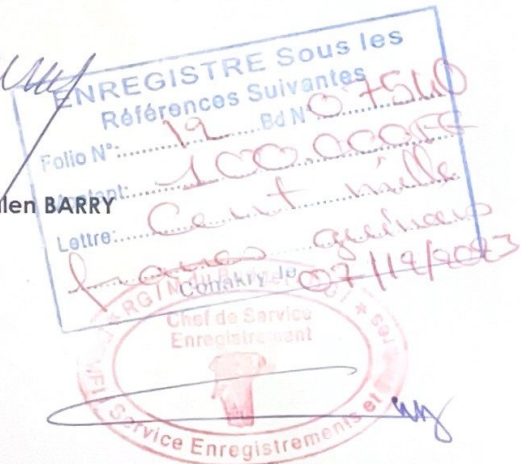 ENREGISTRE Sous les
Références Suivantes
Folio N°: 19 Bd N° 07540
100.000FG
len BARRY
Lettre: Cent mille
francs guinéens
Conakry le 07/12/2023
Chef de Service
Enregistrement
Service Enregistrements et